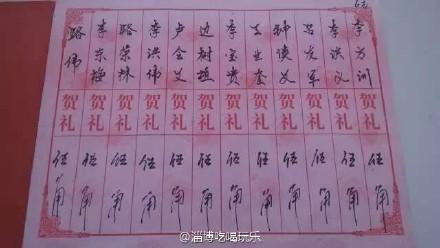 李方训 贺礼 伍角
李洪义 贺礼 伍角
吕发军 贺礼 伍角
义 贺礼 伍角
王世奎 贺礼 伍角
李宝贵 贺礼 伍角
边树 贺礼 伍角
卢金义 贺礼 伍角
李洪伟 贺礼 伍角
路荣林 贺礼 伍角
李东艳 贺礼 伍角
路伟 贺礼 伍角
@淄博吃喝玩乐